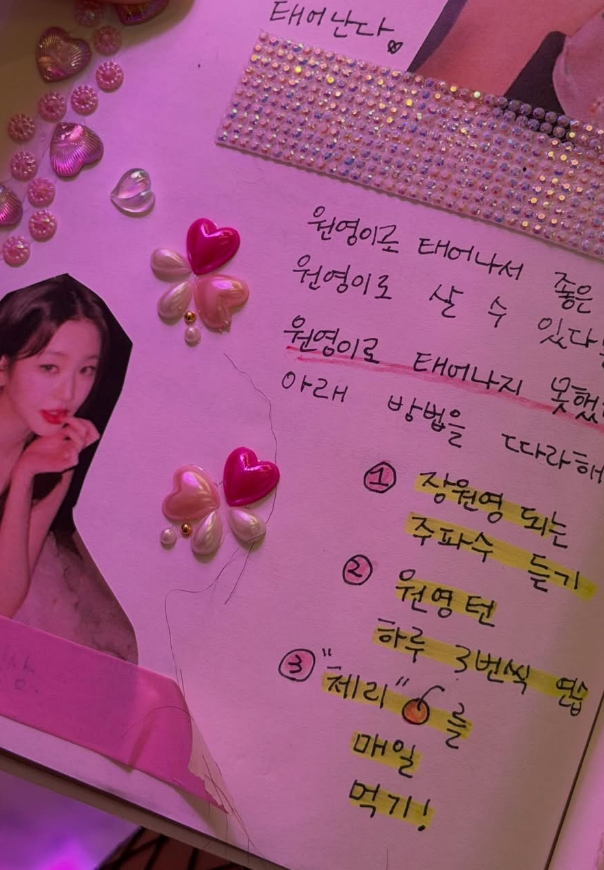 태어난다
원영이로 태어나서 좋은
원영이로 살 수 있다
원영이로 태어나지 못했
아래 방법을 따라해
① 장원영 되는
주파수 듣기
② 원영턴
하루 3번씩 연습
③ "체리" 를
매일
먹기!